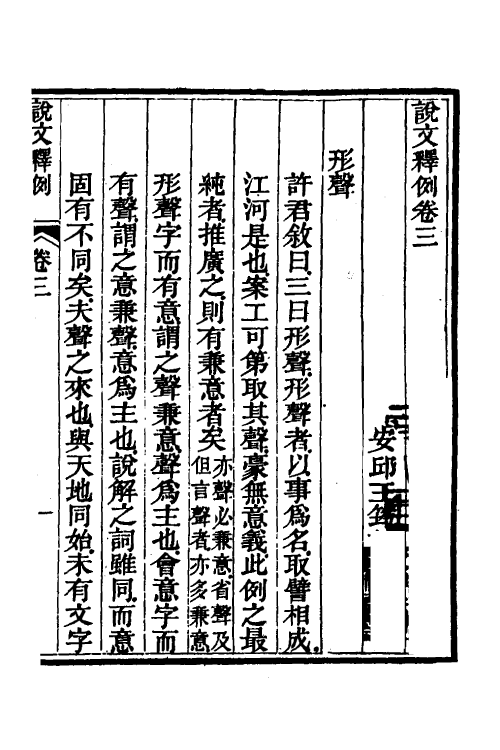 說文釋例卷三
安邱王筠
形聲
許君敘曰三曰形聲形聲者以事爲名取譬相成
江河是也案工可第取其聲豪無意義此例之最
純者推廣之則有兼意者矣亦聲必兼意省聲及但言聲者亦多兼意
形聲字而有意謂之聲兼意聲爲主也會意字而
有聲謂之意兼聲意爲主也說解之詞雖同而意
固有不同矣夫聲之來也與天地同始未有文字
說文釋例
卷三
一